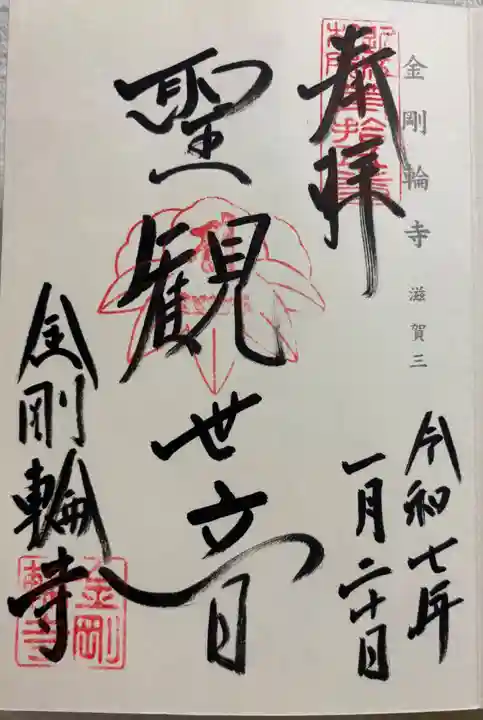 金剛輪寺 滋賀三
奉拝
令和七年
一月二十日
聖観世音
金剛輪寺
金剛
輪寺